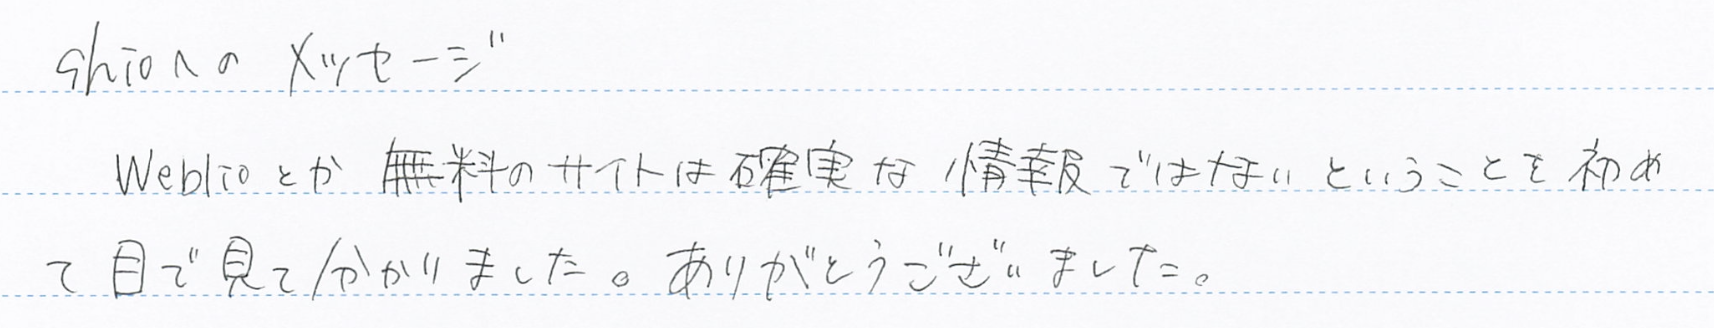 shioへの メッセージ
Weblioとか 無料のサイトは確実な情報ではないということを初め
て目で見て分かりました。ありがとうございました。